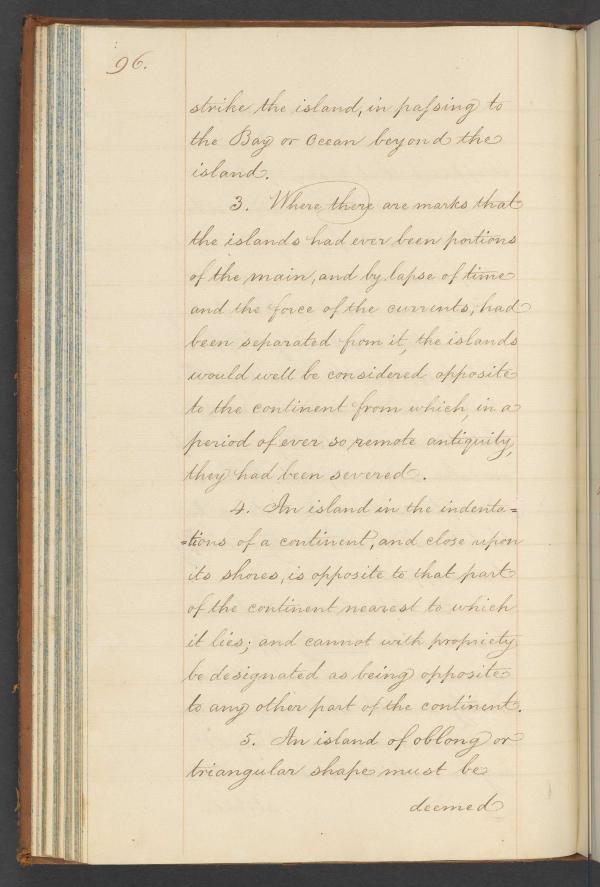 96.
strike the island, in passing to
the Bay or Ocean beyond the
island.
3. Where there are marks that
the islands had ever been portions
of the main, and by lapse of time
and the force of the currents, had
been separated from it, the islands
would well be considered opposite
to the continent from which, in a
period of ever so remote antiquity,
they had been severed.
4. An island in the indenta=
=tions of a continent, and close upon
its shores, is opposite to that part
of the continent nearest to which
it lies; and cannot with propriety
be designated as being opposite
to any other part of the continent.
5. An island of oblong or
triangular shape must be
deemed